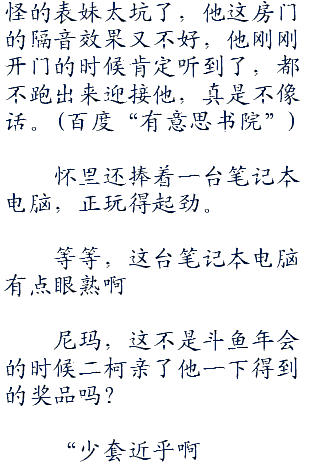 怪的表妹太坑了，他这房门
的隔音效果又不好，他刚刚
开门的时候肯定听到了，都
不跑出来迎接他，真是不像
话。(百度“有意思书院”)
怀里还捧着一台笔记本
电脑，正玩得起劲。
等等，这台笔记本电脑
有点眼熟啊
尼玛，这不是斗鱼年会
的时候二柯亲了他一下得到
的奖品吗？
“少套近乎啊